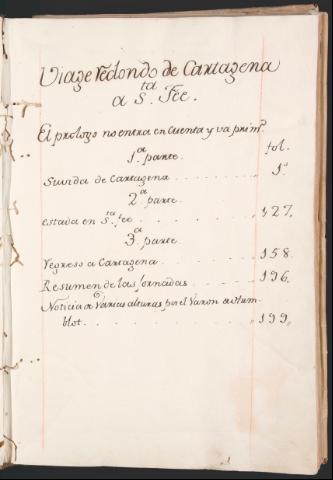 Viage redondo de Cartagena
a S.ta Fee.
El prologo no entra en cuenta y va prim.o
fol.
1.a parte.
Suvida de Cartagena . . . . . . . . . 1.o
2.a parte.
estada en S.ta fee . . . . . . . . 127.
3.a parte.
regreso a Cartagena . . . . . . 158.
Resumen de las Jornadas . . . . . . 196.
Noticia de varias alturas, por el Varon de Hum-
blot. . . . . . . . . . . . . . 199.